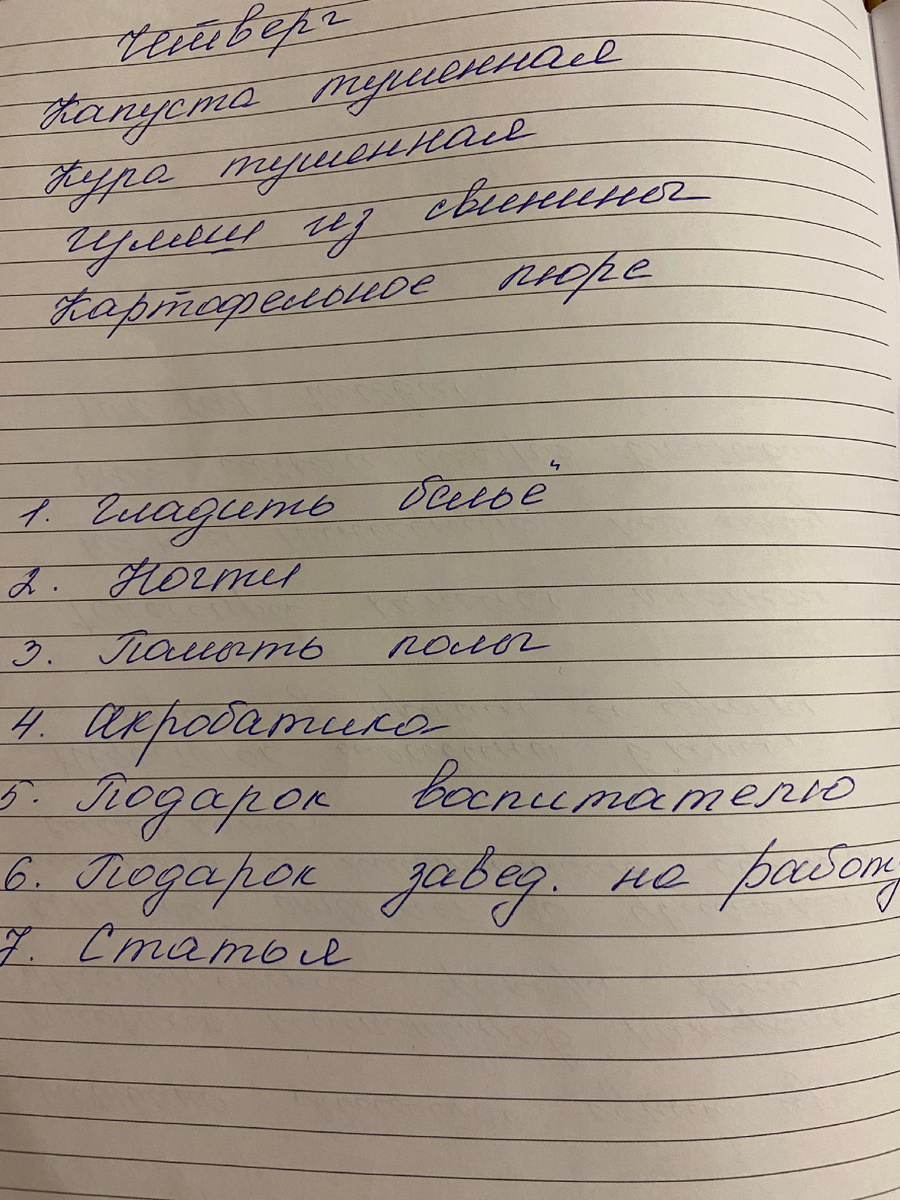 Четверг
Капуста тушенная
Кура тушенная
гуляш из свинины
Картофельное пюре
1. Гладить бельё
2. Ногти
3. Помыть полы
4. Акробатика
5. Подарок воспитателю
6. Подарок завед. на работу
7. Статья